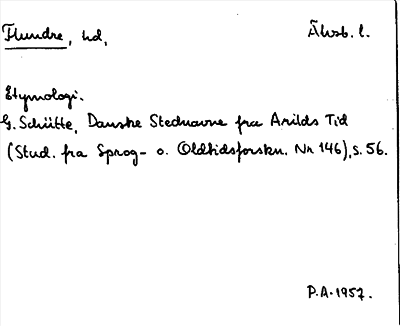 Flundre, hd, Åhusb. l.
Etymologi.
G. Schütte, Danske Stednavne fra Arilds Tid
(Stud. fra Sprog- o. Oldtidsforskn. Nr 146), s. 56.
P.A. 1957.